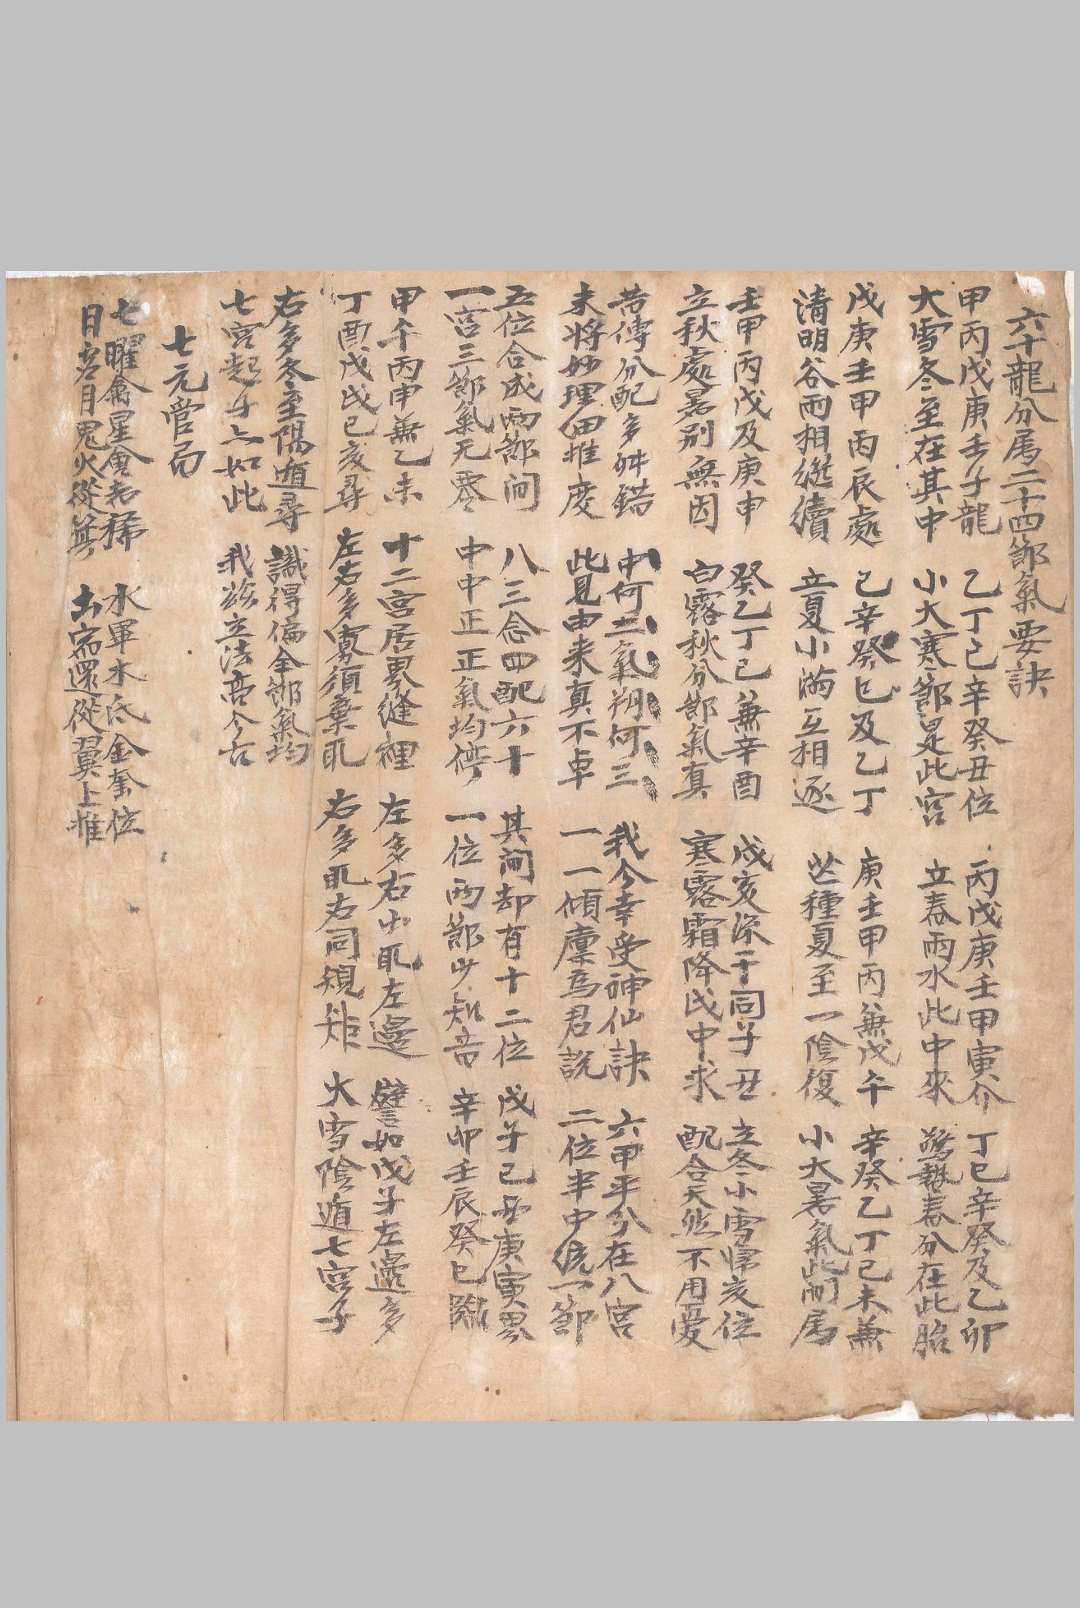 六十龍分属二十四節氣要訣
甲丙戊庚壬子龍 乙丁己辛癸丑位 丙戊庚壬甲寅介 丁己辛癸及乙卯
大雪冬至在其中 小大寒節是此宮 立春雨水此中來 驚蟄春分在此胎
戊庚壬甲丙辰處 己辛癸巳及乙丁 庚壬甲丙兼戊午 辛癸乙丁己未兼
清明谷雨相繼續 立夏小滿互相逐 芒種夏至一陰復 小大暑氣此對属
壬甲丙戊及庚申 癸乙丁己兼辛酉 戌亥深干同子丑 立冬小雪歸亥位
立秋處暑别無因 白露秋分節氣真 寒露霜降戌中求 配合天然不用憂
昔傳分配多舛錯 中何二氣朔何三 我今幸受神仙訣 六甲平分在八宮
未將妙理由推度 此見由来真不卓 一一傾廩爲君説 二位半中统一節
五位合成兩節间 八三念四配六十 其间却有十二位 戊子己丑庚寅界
一宫三節氣无零 中中正正氣均停 一位两節少知音 辛卯壬辰癸巳臨
甲午丙申兼乙未 十二宫居界縫裡 左多右少取左邊 譬如戊子左邊多
丁酉戊戌己亥尋 左右多寡須棄取 右多取右同規矩 大雪陰遁七宫子
右多冬至陽遁尋 識得偏全節氣均
七宫起子亦如此 我兹立法高今古
七元管局
七曜禽星會者稀 水畢木氐金奎位
日虚月鬼火從箕 土宿還從翼上推